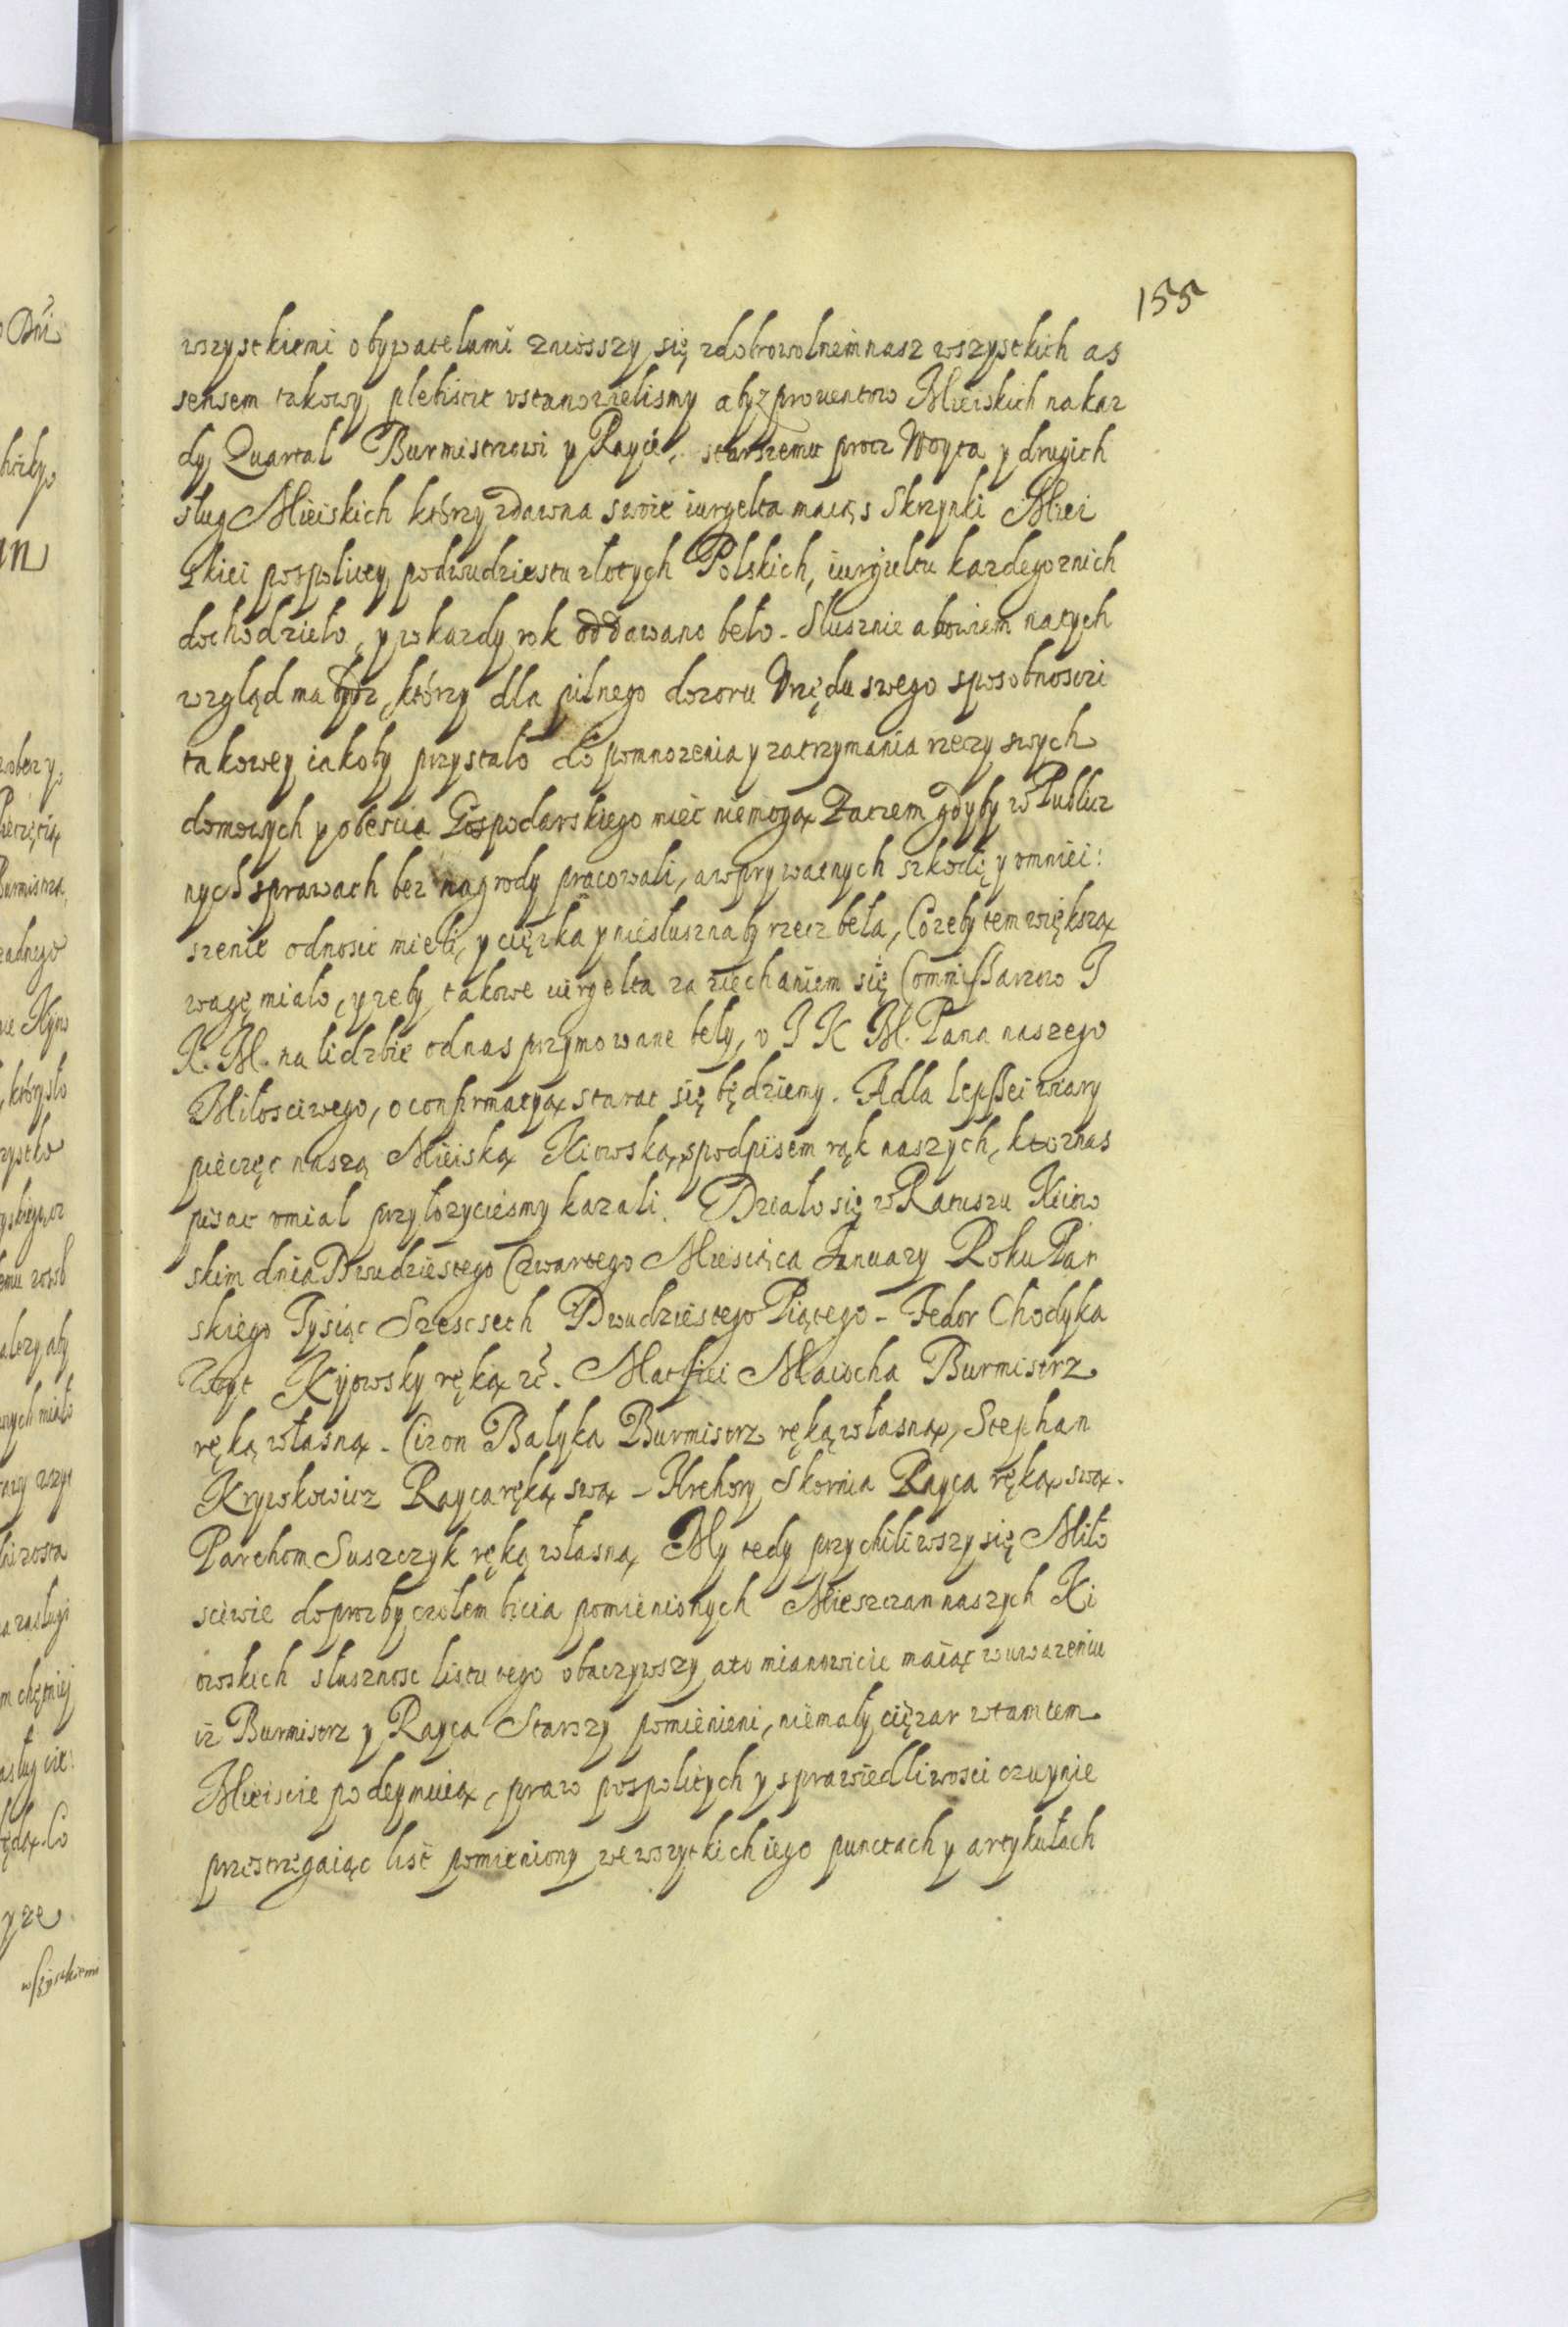 155
wszystkiemi obywatelami zniosszy się zdobrowolnem nasz wszystkich as
sensem takowy plebiscit ustanowielismy aby z prouentow Mieiskich na kaz
dy Quartal Burmistrzowi y Raycie, starszemu procz Woyta y drugich
sług Mieiskich którzy zdawna swoie iurgelta maią s Skrzynki Miei
skiei pospolitey podwudziestu złotych Polskich, iurgieltu kazdego znich
dochodzieło, y w kazdy rok oddawano beło. Slusznie abowiem na tych
wzgląd ma bydz, którzy dla pilnego dozoru Urzędu swego sposobnosci
takowey iakoby przystało do pomnozenia y zatrzymania rzeczy swych
domowych y obescia Gospodarskiego mieć niemogą Zaczem gdyby w Publicz
nych sprawach bez nagrody pracowali, a w prywatnych szkodę y omniei:
szenie odnosic mieli, y cięzka y niesluszna by rzecz beła, Co zeby tem większą
wagę miało, y zeby takowe iurgelta za ziechaniem się Commissarzow J
K. M. na lidzbie odnas przymowane beły, v J K M. Pana naszego
Miłosciwego, o confirmatią starac się będziemy. A dla lepszei wiary
pieczęc naszą Mieiską Kiowską, s podpisem rąk naszych, kto znas
pisac umial przyłozyciesmy kazali. Działo się w Ratuszu Kiiow
skim dnia Dwudziestego Czwartego Miesiąca January Roku Pan
skiego Tysiąc Szescseth Dwudziestego Piątego - Fedor Chodyka
Woyt Kyiowsky ręką wł. Matfiei Maiocha Burmistrz
ręką własną - Cizon Balyka Burmistrz ręką własną, Stephan
Krywkowicz Rayca ręką swą - Hrehory Skornia Rayca ręką swą.
Parchom Suszczyk ręką własną My tedy przychiliwszy się Miło
sciwie do prozby czołem bicia pomienionych Mieszczan naszych Ki
owskich słusznosc listu tego obaczywszy a to mianowicie maiąc w uwazeniu
iz Burmistrz y Rayca Starszy pomienieni, niemały cięzar w tamtem
Mieiscie podeymuią, praw pospolitych y sprawiedliwosci czuynie
przestrzegaiąc list pomieniony we wszytkich iego punctach y artykułach